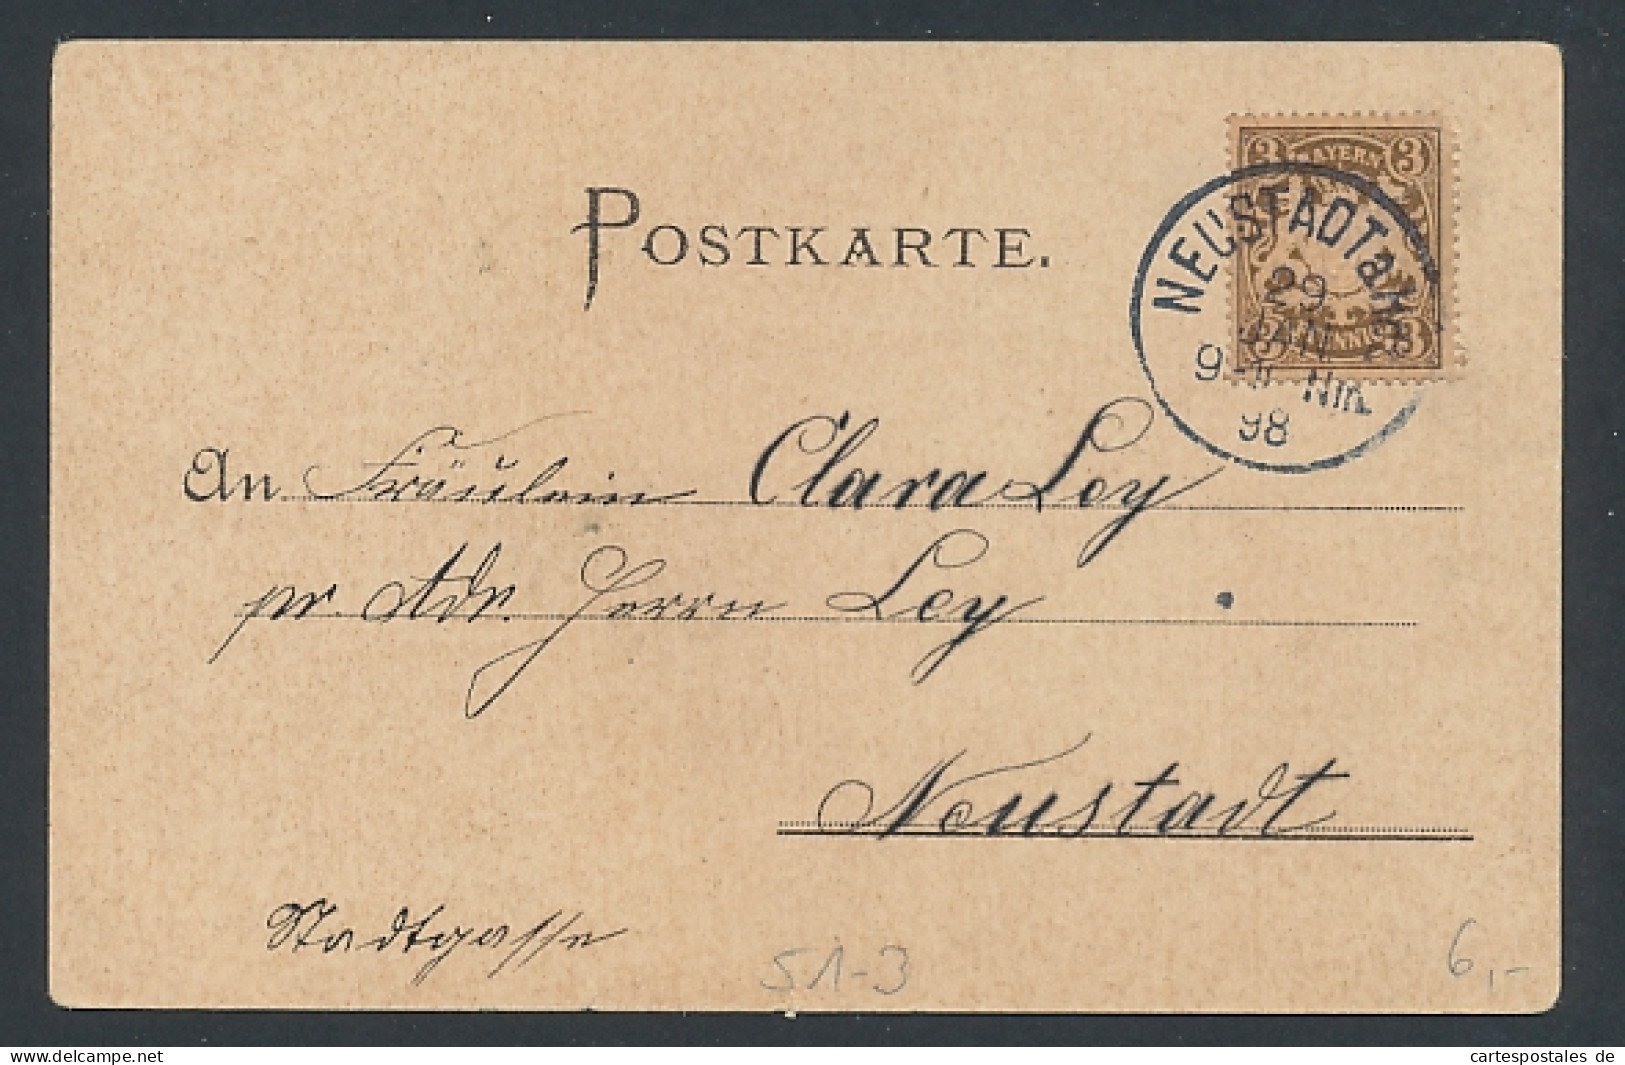 POSTKARTE.
3 BAYERN 3
NEUSTADT a/H.
29
JAN
9-11 Nm.
98
3 PFENNIG 3
An Fräulein Clara Ley
pr. Adr. Herrn Ley
Neustadt
Stadtgasse
51-3
6,-
www.delcampe.net
cartespostales de